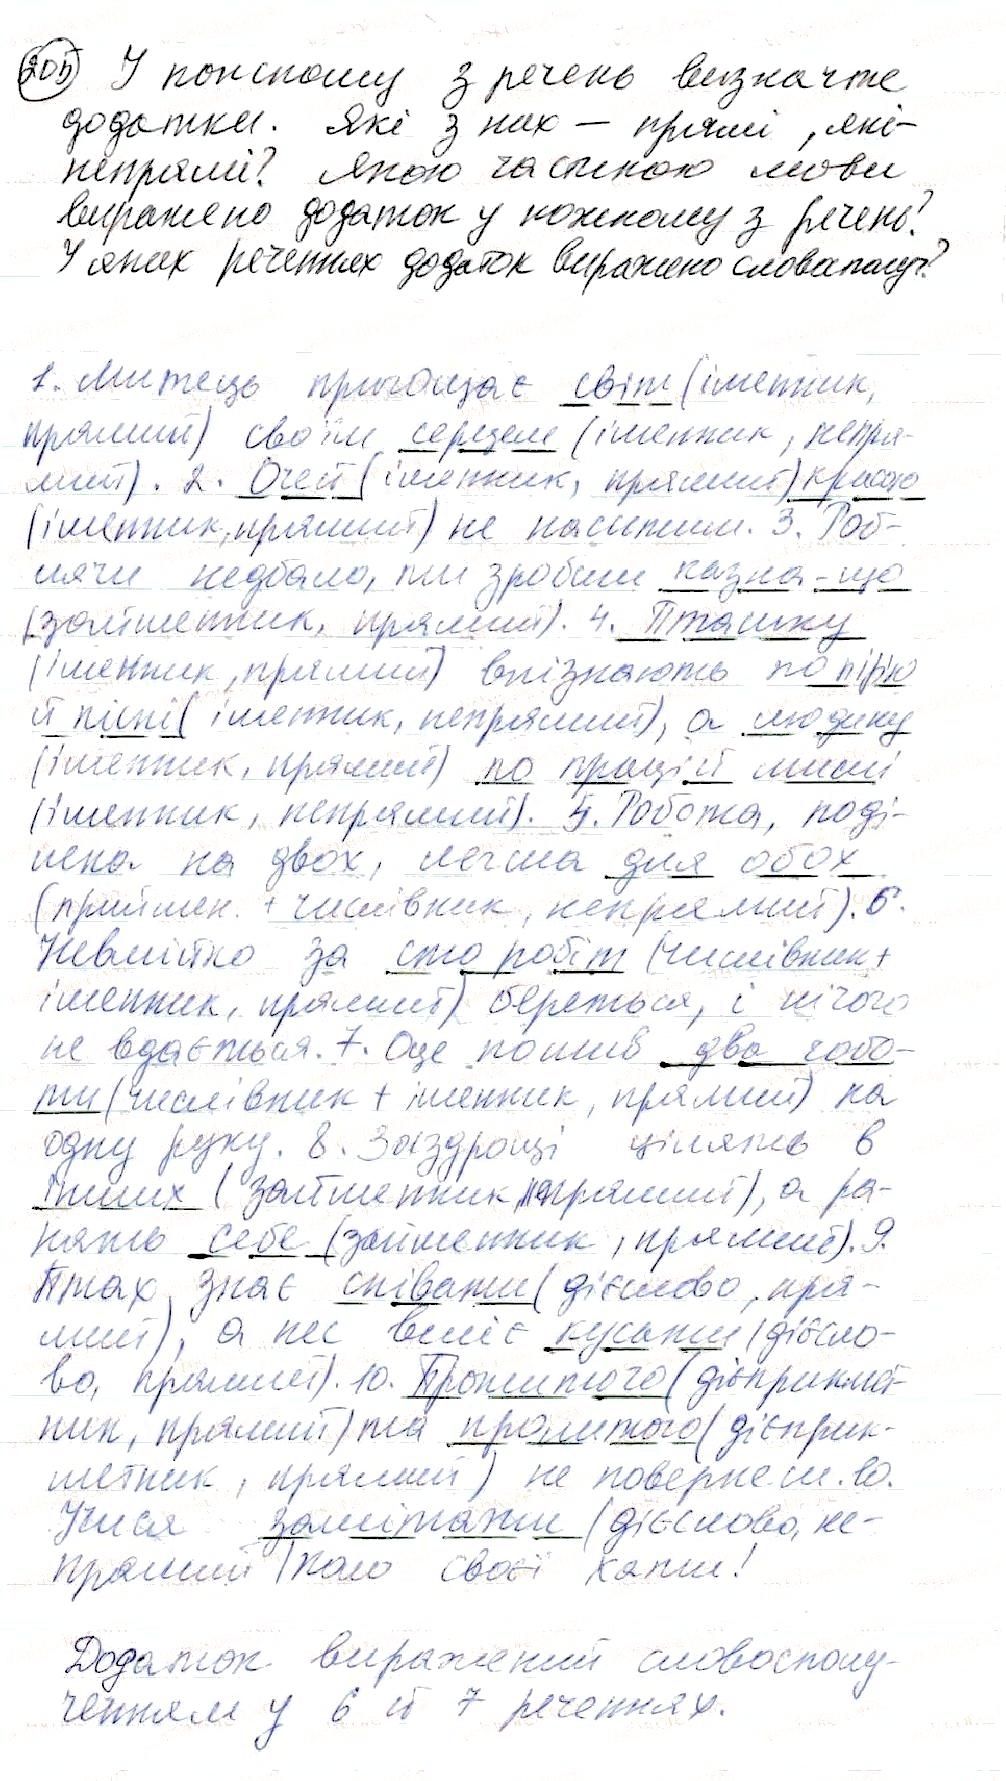 205 У кожному з речень визначте
додатки. Які з них – прямі, які –
непрямі? Якою частиною мови
виражено додаток у кожному з речень?
У яких реченнях додаток виражено словосполуч?
1. Митець пригощає світ (іменник,
прямий) своїм серцем (іменник, непря-
мий). 2. Очей (іменник, прямий) красою
(іменник, прямий) не наситиш. 3. Роб-
лячи недбало, ти зробиш казна-що
(займенник, прямий). 4. Пташку
(іменник, прямий) впізнають по пір'ю
й пісні (іменник, непрямий), а людину
(іменник, прямий) по праці й мислі
(іменник, непрямий). 5. Робота, поді-
лена на двох, легша для обох
(приймен. + числівник, непрямий). 6.
Невмітко за сто робіт (числівник +
іменник, прямий) береться, і нічого
не вдається. 7. Оце пошив два чобо-
ти (числівник + іменник, прямий) на
одну руку. 8. Заздрощі цілять в
інших (займенник, непрямий), а ра-
нять себе (займенник, прямий). 9.
Птах знає співати (дієслово, пря-
мий), а пес вміє кусати (дієсло-
во, прямий). 10. Прожитого (дієприкмет-
ник, прямий) та пролитого (дієприк-
метник, прямий) не повернеш. 10.
Учися замітати (дієслово, не-
прямий) коло своєї хати!
Додаток виражений словосполу-
ченням у 6 й 7 реченнях.